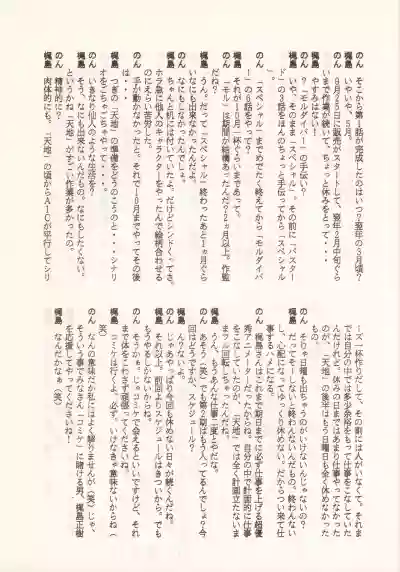 のん　そこから第１話が完成したのはいつ？翌年の３月頃？
梶島　いやいや、
９月２５日に販売がスタートして、翌年２月中旬ぐら
いまで作業が続いて。ちょっと休みをとって・・・
のん　やすみはない！
梶島　いや、そのまま「スペシャル」。その前に「バスター
ド」の３話をほんのちょっと手伝ってから「スペシャ
ル」。
のん　「スペシャル」までめでたく終えてから「モルダイバ
ー」の６話やって？
梶島　それが１０月一杯ぐらいまであって。
のん　「モル」は期間が結構あったんだ？２カ月以上。作監
だね？
梶島　うん。だって「スペシャル」終わったあと１ヵ月ぐら
いなにも出来なかったんだよ。
のん　なにもしなかったんでしょ。
梶島　ちゃんと机にはついていたよ。だけどシンドくってさ。
ホラ急に他人のキャラクターをやったんで絵柄合わせる
のにえらい苦労した。
のん　手が動かなかったと。それで１０月までやってその後
は・・・。
梶島　つぎの「天地」の準備をどうのこうのと・・・シナリ
オをごちゃごちゃやって・・・。
のん　いきなり仙人のような生活を？
梶島　そう。なにも出来ないんだもの。なにもしたくない。
というかね。「天地」がすごい作業が多かったの。
のん　精神的に？
梶島　肉体的にも、「天地」の頃からＡＩＣが平行してシリ
ーズ一杯作りだして、その割には人がいなくて。それま
では自分の中では多少余裕もあって仕事をこなしていた
んだけれど。休みの日まではあまり仕事やってなかった
のが、「天地」の後半はもう日曜も全く休めなかった
もの。
のん　そりゃ日曜も出ちゃうのがいけないんじゃないの？
梶島　だってそうしないと終わらないんだもの。終わんない
し、心配になってゆっくり休めない。だから会いに来て仕
事するハメになる。
のん　梶島さんはこれまで期日までに必ず仕事を上げる超優
秀アニメーターだったからね。自分の中で計画的に仕事
をこなしていたのが、「天地」では全く計画立たないま
まフル回転しちゃったんだね。
梶島　うん、もうあんな仕事二度とやだな。
のん　あそう（笑）でも第２期はもう入ってるんでしょ？今
回はどうですか、スケジュール？
梶島　ん？なにが？
のん　じゃあ、やっぱり今回も休めない日々が続くんだ。
梶島　それ以上。前回よりスケジュールはきついから。でも
もうやるしかないからね。
のん　そうかぁ。じゃコミケで会えるといいですけど、それ
まで体をこわさず頑張ってくださいね。
梶島　コミケには行くよ。必ず。いけなきゃ意味ないからね（
笑）
のん　なんの意味だか私にはよく解りませんが（笑）じゃ、
そういう事でみなさん「コミケ」に賭ける男、梶島正樹
を応援してやってくださいね！
梶島　なんだかなぁ（笑）